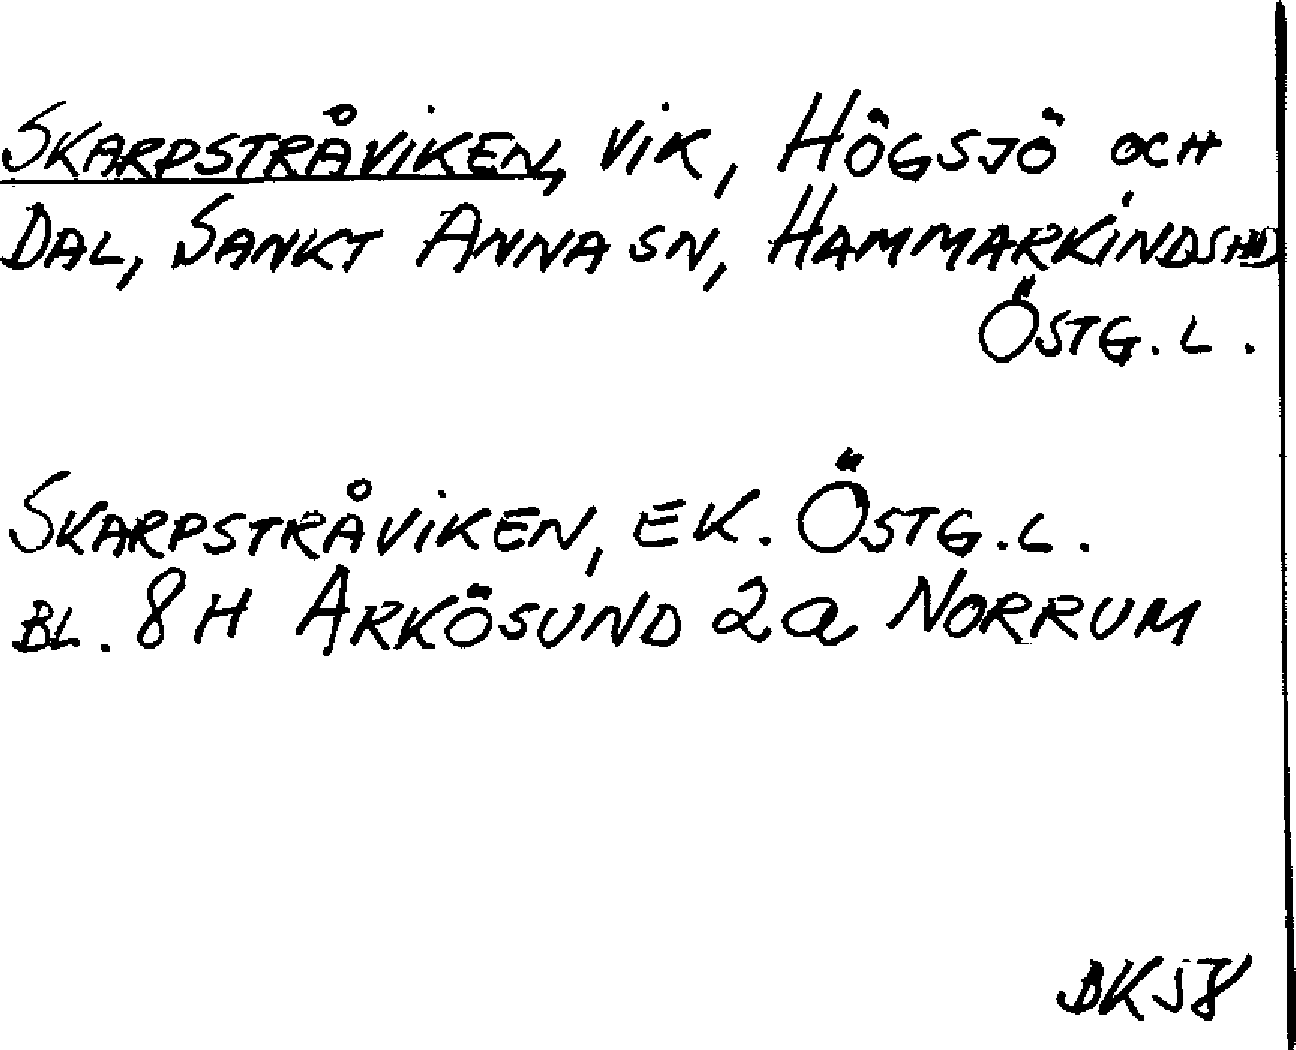 SKARPSTRÅVIKEN, VIK, HÖGSJÖ OCH
DAL, SANKT ANNA SN, HAMMARKINDSHD
ÖSTG. L.
SKARPSTRÅVIKEN, EK. ÖSTG. L.
BL. 8H ARKÖSUND 2a NORRUM